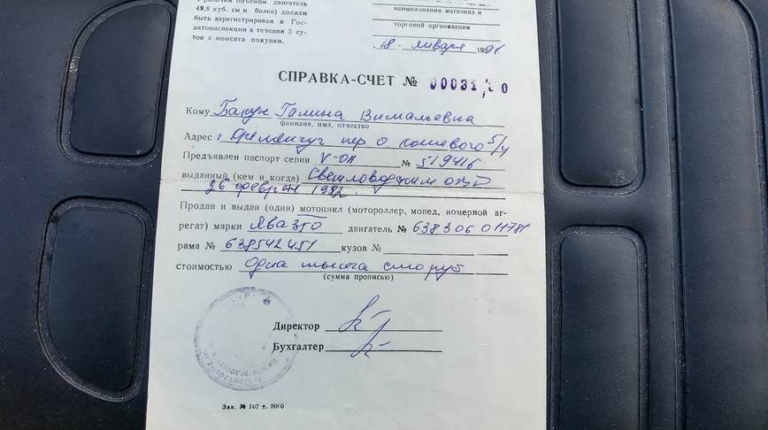 с рабочим объемом двигателя
49,8 куб. см и более) должен
быть зарегистрирован в Гос-
автоинспекции в течении 5 су-
ток с момента покупки.
наименование магазина и
торговой организации
18 января 1991
СПРАВКА-СЧЕТ №
Кому Бакун Галина Витальевна
фамилия, имя, отчество
Адрес г. Кременчуг пер О Кошевого 5/4
Предъявлен паспорт серии V-ОЛ № 519416
выданный (кем и когда) Светловодским
26 февраля 1982
Продан и выдан (один) мотоцикл (мотороллер, мопед, номерной аг-
регат) марки Ява 350 двигатель № 638306 011781
рама № 638542451 кузов №
стоимостью Одна тысяча сто руб
(сумма прописью)
Директор
Бухгалтер
Зак. № 107 т. 8000